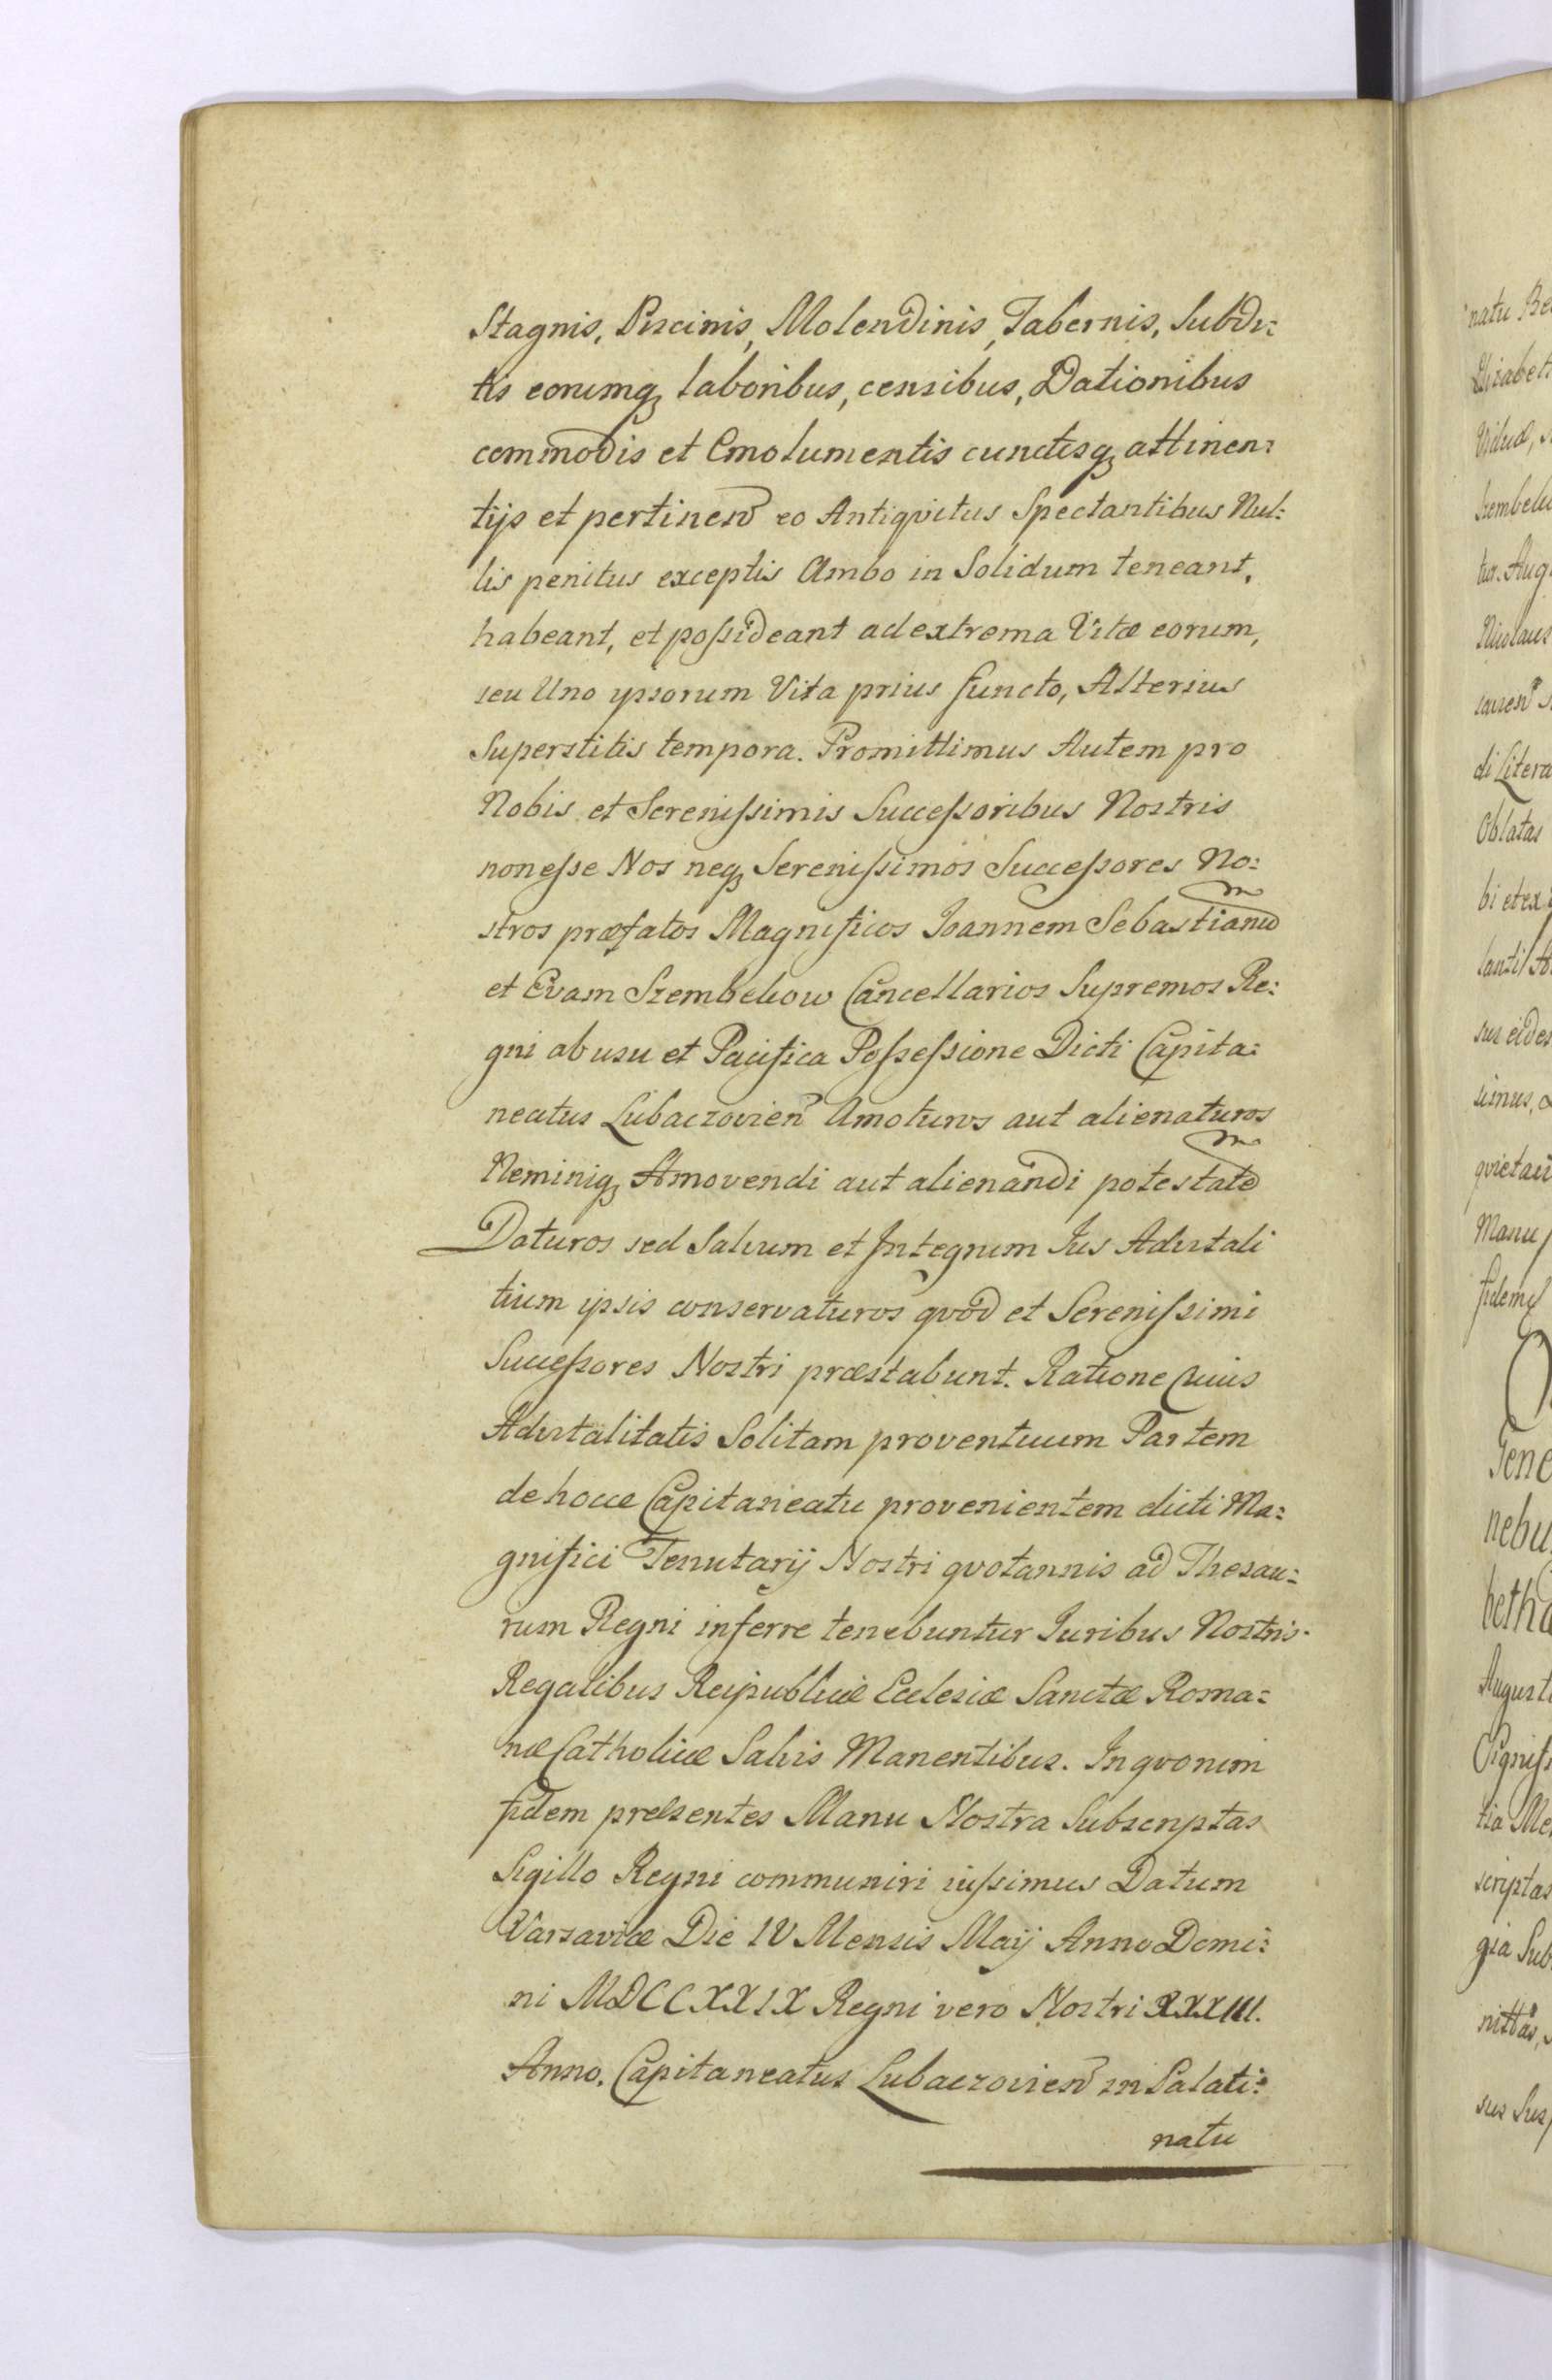 Stagnis, Piscinis, Molendinis, Tabernis, Subdi:
tis eorumq; laboribus, censibus, Dationibus
commodis et Emolumentis cunctisq; attinen:
tijs et pertinen eo Antiqvitus Spectantibus Nul:
lis penitus exceptis Ambo in Solidum teneant,
habeant, et possideant ad extrema Vitæ eorum,
seu Uno ypsorum Vita prius functo, Alterius
Superstitis tempora. Promittimus Autem pro
Nobis et Serenissimis Successoribus Nostris
non esse Nos neq; Serenissimos Successores No:
stros præfatos Magnificos Ioannem Sebastianum
et Evam Szembekow Cancellarios Supremos Re:
gni ab usu et Pacifica Possessione Dicti Capita:
neatus Lubaczovien Amoturos aut alienaturos
Neminiq; Amovendi aut alienandi potestatem
Daturos sed Salvum et Integrum Ius Advitali
tium ipsis conservaturos qvod et Serenissimi
Successores Nostri præstabunt. Ratione Cuius
Advitalitatis Solitam proventuum Partem
de hocce Capitaneatu provenientem dicti Ma:
gnifici Tenutarij Nostri qvotannis ad Thesau:
rum Regni inferre tenebuntur Iuribus Nostris
Regalibus Reipublicæ Ecclesiæ Sanctæ Roma:
næ Catholicæ Salvis Manentibus. In qvorum
fidem præsentes Manu Nostra Subscriptas
Sigillo Regni communiri iussimus Datum
Varsaviæ Die IV Mensis Maij Anno Domi:
ni MDCCXXIX Regni vero Nostri XXXIII.
Anno. Capitaneatus Lubaczovien in Palati:
natu
natu
di Litera
Oblatas
bi et ex
simus,
Manu
fidem
Tene
nebu
betha
Augusti
scriptas
gia Sub